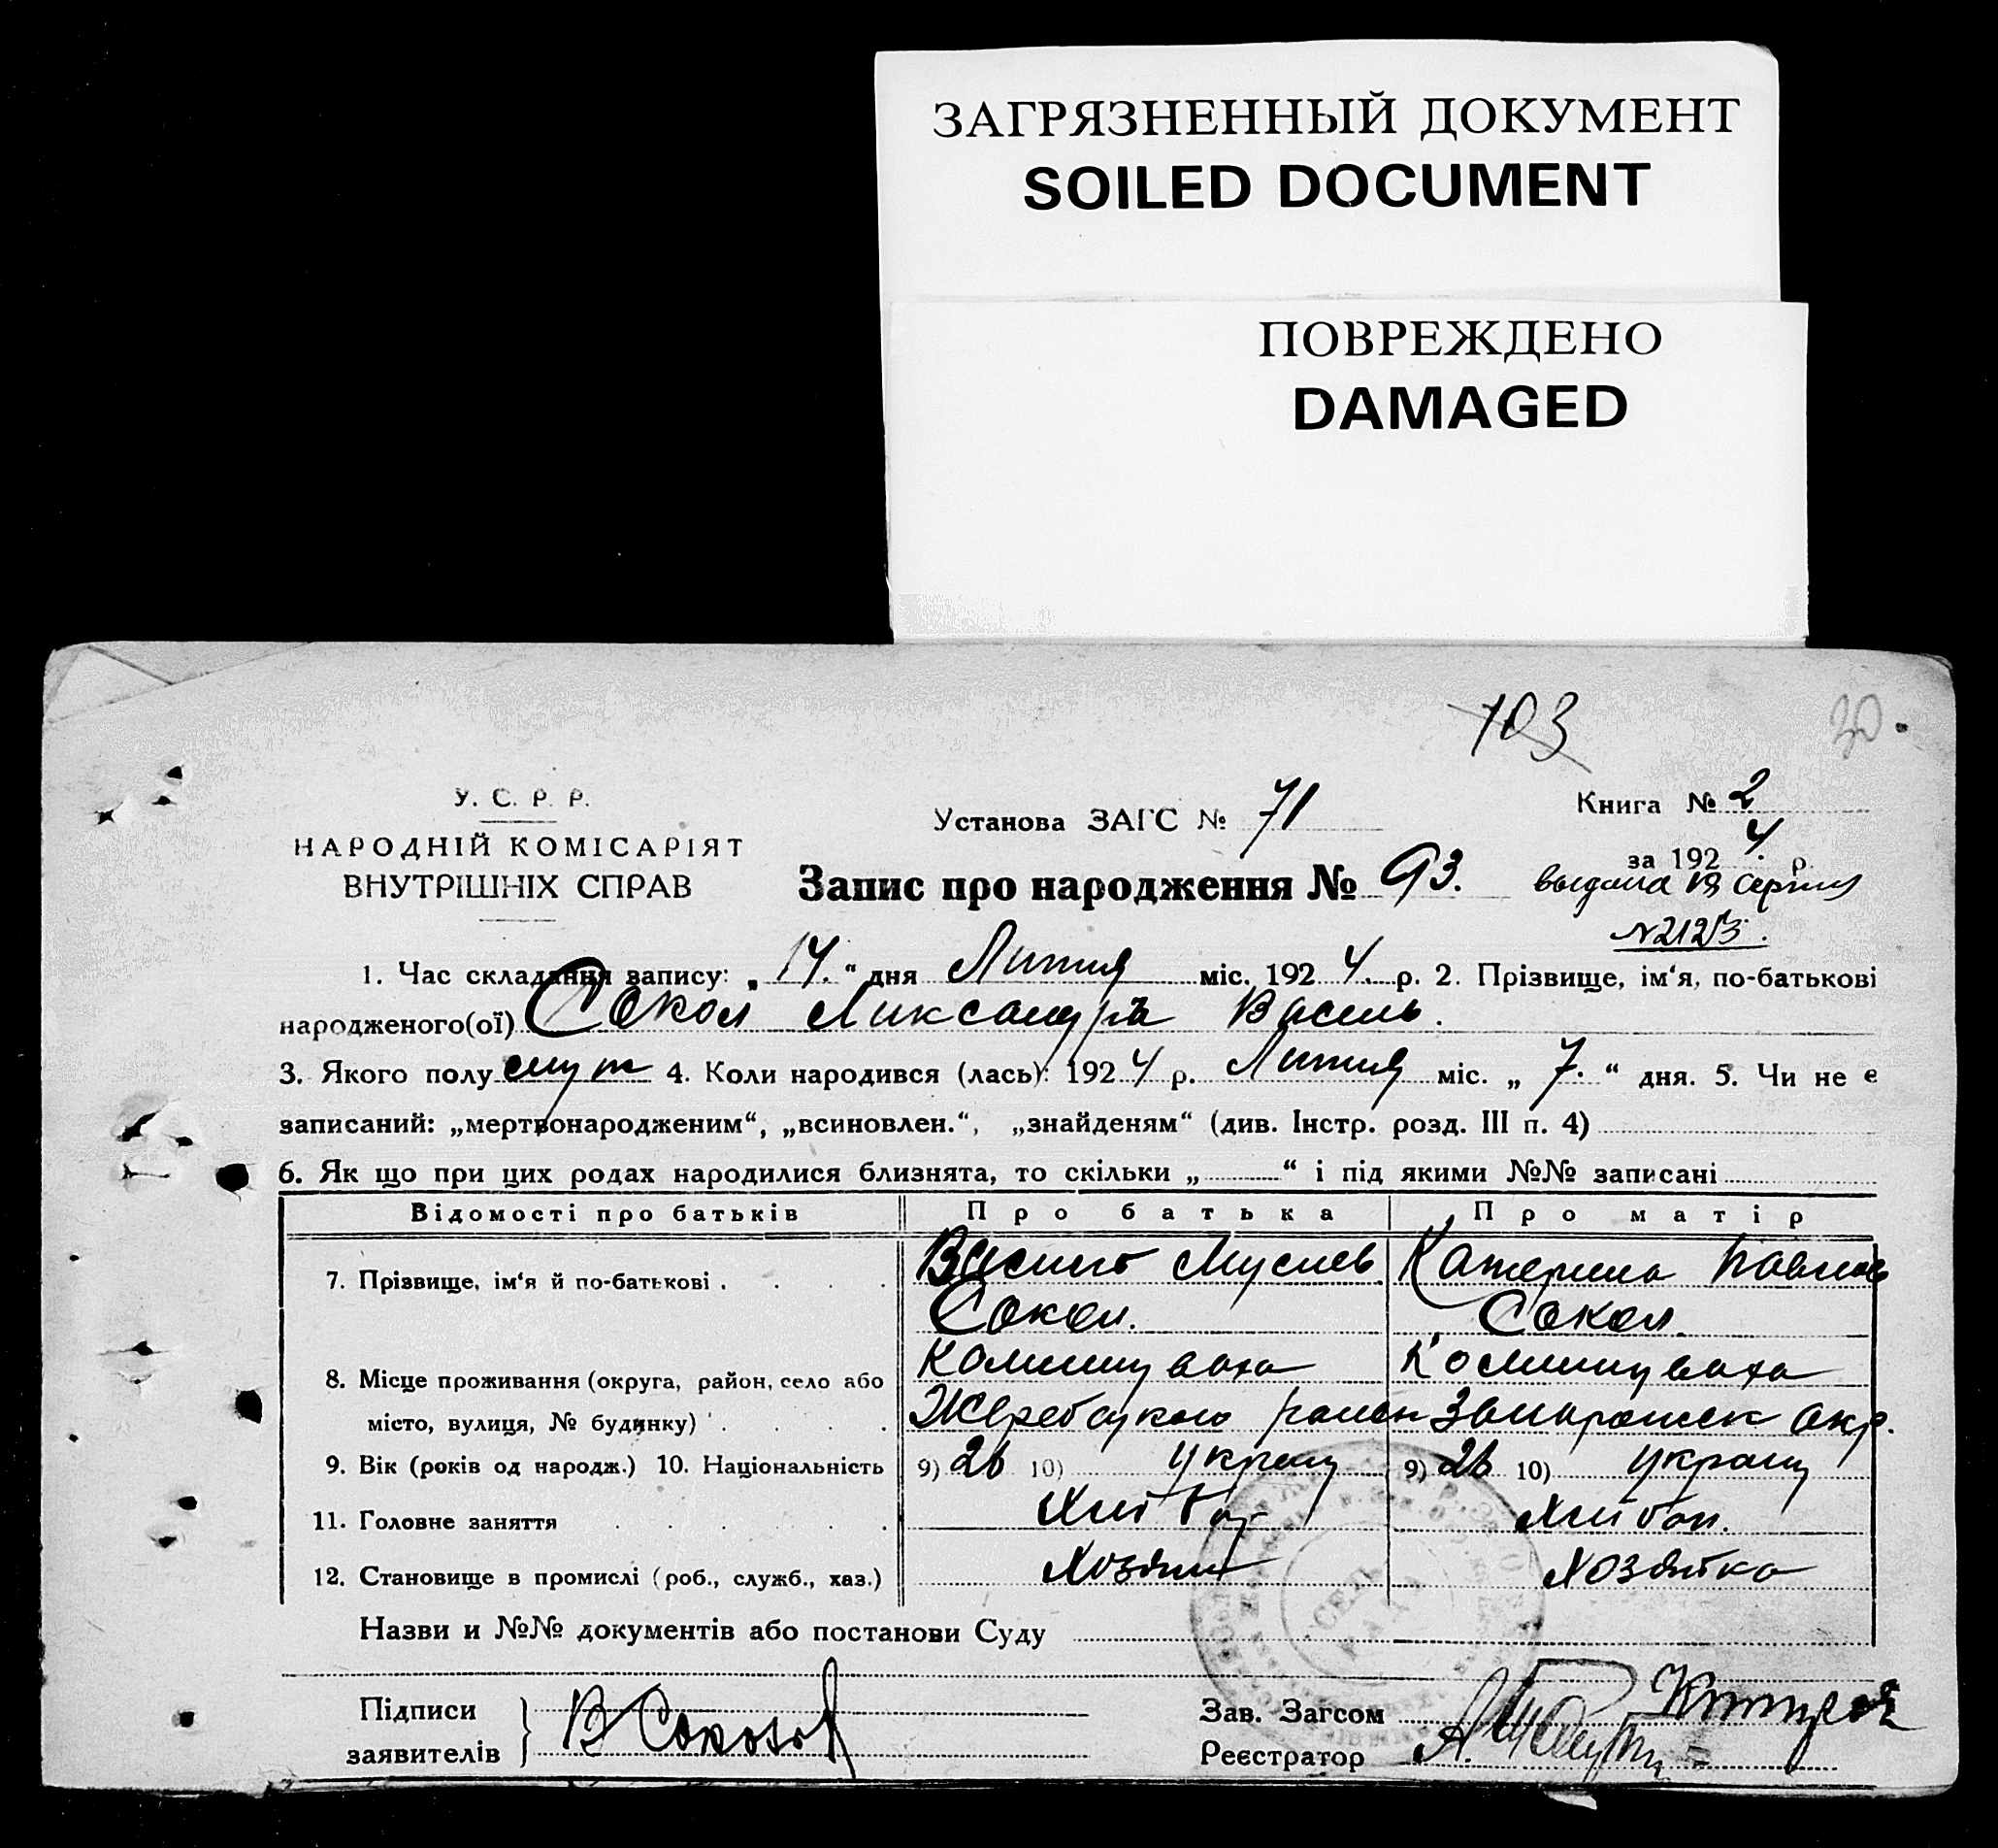 ЗАГРЯЗНЕННЫЙ ДОКУМЕНТ
SOILED DOCUMENT
ПОВРЕЖДЕНО
DAMAGED
103
30.
У. С. Р. Р.
НАРОДНІЙ КОМІСАРІЯТ
ВНУТРІШНІХ СПРАВ
Установа ЗАГС № 71
Книга № 2
за 192 4 р.
Запис про народження № 93.
выдана 19 серпня
№2123.
1. Час складання запису: „ 14. “ дня Липня міс. 192 4. р. 2. Прізвище, ім‘я, по-батькові
народженого(ої) Сокол Ликсандра Василь.
3. Якого полу 4. Коли народився (лась): 192 4 р. Липня міс. „ 7. “ дня. 5. Чи не є
записаний: „мертвонародженим“, „всиновлен.“, „знайденям“ (див. Інстр. розд. III п. 4)
6. Як що при цих родах народилися близнята, то скільки „ “ і під якими №№ записані
Відомості про батьків Про батька Про матір
7. Прізвище, ім‘я й по-батькові . . . . Василь Мусиев Катерина Павлов
Сокол. Сокол.
8. Місце проживання (округа, район, село або Комишуваха Комишуваха
місто, вулиця, № будинку) . . . . Жеребцукого район Запорожск окр.
9. Вік (років од народж.) 10. Національність 9) 26 10) украин 9) 26 10) украин
11. Головне заняття . . . . . . Хлібор Хлібоп.
12. Становище в промислі (роб., служб., хаз.) Хозяин Хозяйка
Назви и №№ документів або постанови Суду
Підписи
заявителів В Соколов
Зав. Загсом
Реєстратор